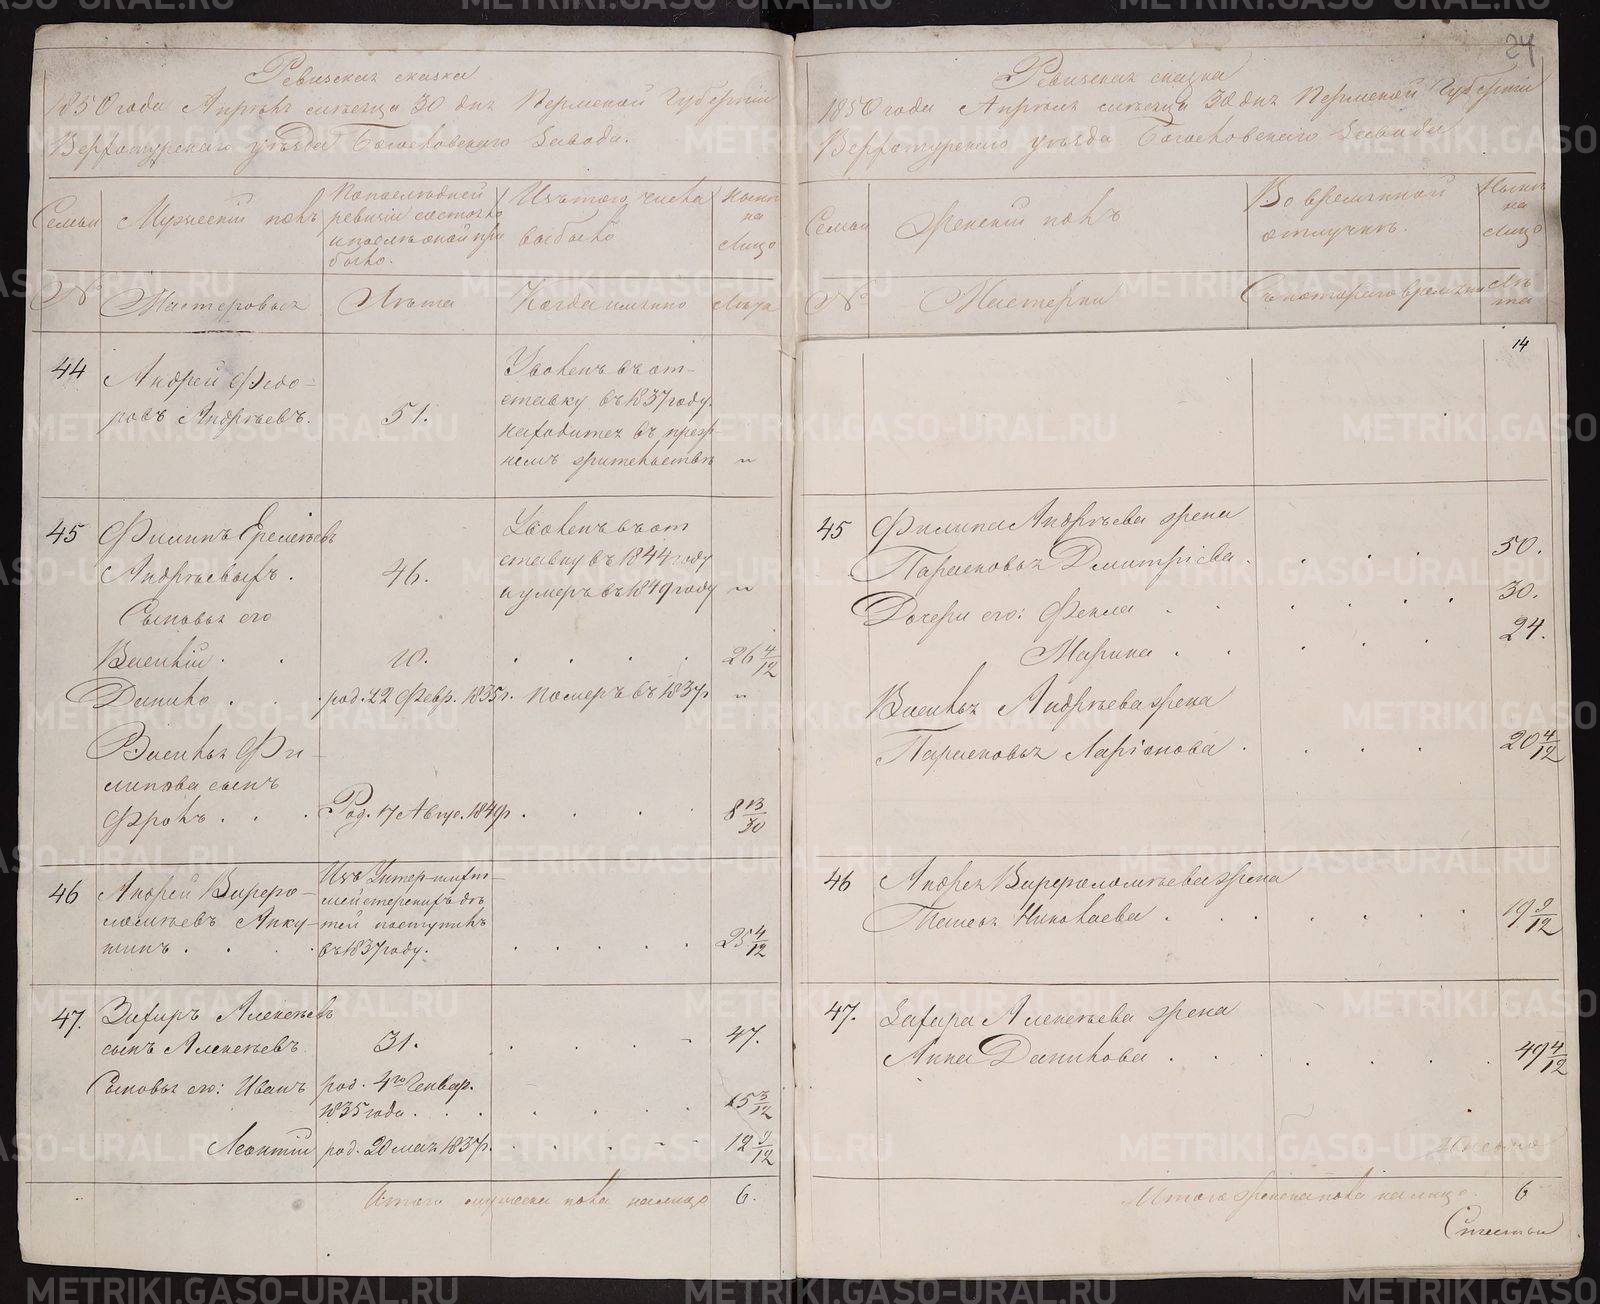 Ревизская сказка
1850 года Апрѣля мѣсяца 30 дня Пермской Губерніи
Верхотурскаго уѣзда Богословскаго Завода.
Семьи
Мужескій полъ
По послѣдней
ревизіи состояло
и послѣ оной при
было.
Изъ того числа
выбыло
Нынѣ
на
лицо
№
Мастеровыя
Лѣта
Когда именно
Лѣта
44
Андрей Ѳедо-
ровъ Андреевъ.
51.
Уволенъ въ от-
ставку въ 1837 году.
находится въ преж-
немъ жительствѣ
"
45
Филипъ Еремеевъ
Андреевыхъ.
46.
Уволенъ въ от
ставку въ 1844 году
и умеръ въ 1849 году
"
Сыновья его
Василій
10.
26 4/12
Данило
род. 22 Февр. 1835 г.
померъ въ 1837 г
"
Василья Фи-
липова сынъ
Фролъ
Род. 17 Авгус. 1849 г
8 13/30
46
Андрей Варфоло-
меевъ Анку-
шинъ
Изъ Унтер-шихт-
мейстерскихъ дѣ
тей поступилъ
въ 1837 году.
25 4/12
47.
Захаръ Алексеевъ
сынъ Алексеевъ
31.
47.
Сыновья его: Иванъ
род. 4го Генвар.
1835 года
15 3/12
Леонтій
род. 20 мая 1837 г.
12 9/12
Итого мужеска пола налицо
6.
24
Ревизская сказка
1850 года Апрѣля мѣсяца 30 дня Пермской Губерніи
Верхотурскаго уѣзда Богословскаго Завода
Семьи
Женскій полъ
Во временной
отлучкѣ.
Нынѣ
на
лицо
№
Мастерки
Съ котораго времени
Лѣ
та
14
45
Филипа Андреева жена
Парасковья Дмитріева.
50.
Дочери его: Фекла
30.
Марина
24.
Василья Андреева жена
Парасковья Ларіонова
20 4/12
46
Андрея Варфоломеева жена
Николаева
19 9/12
47.
Захара Алексеева жена
Анна Данилова
49 4/12
Итого женска пола налицо.
6